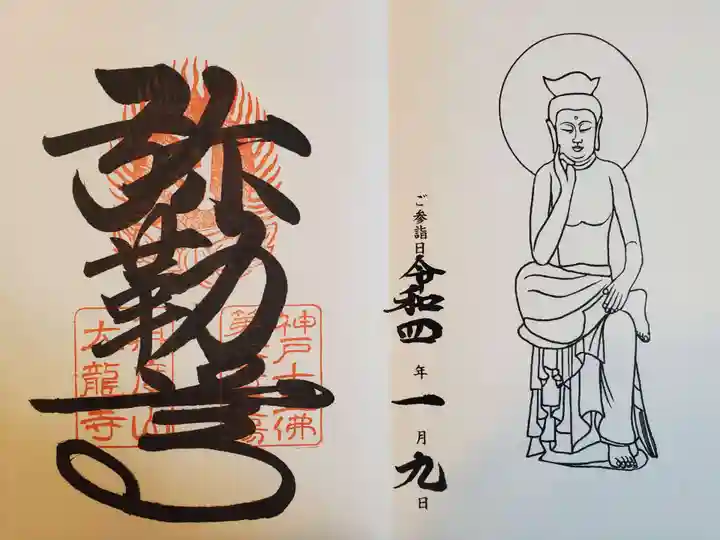 ご参詣日 令和四年一月九日
弥勒菩
神戸十三佛
再度山
大龍寺